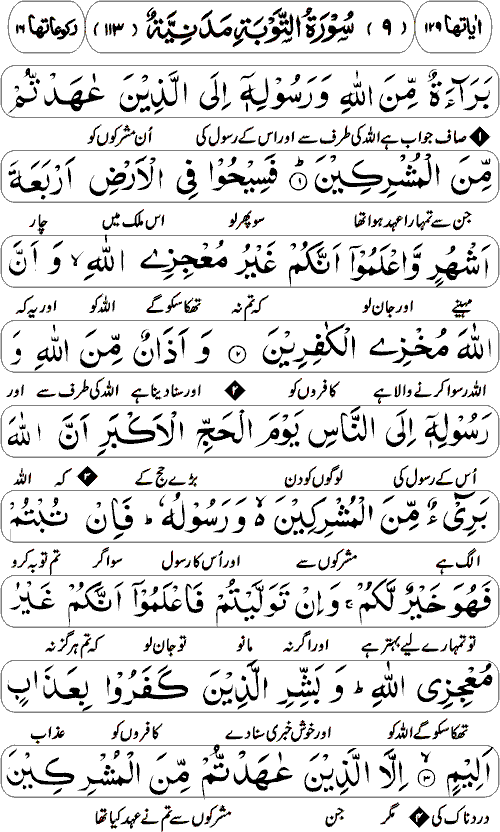 اٰیاتھا ۱۲۹ (۹) سُوْرَۃُ التَّوْبَۃِ مَدَنِیَّۃٌ (۱۱۳) رکوعاتھا ۱۶
بَرَآءَةٌ مِّنَ اللّٰهِ وَرَسُوْلِهٖۤ اِلَى الَّذِيْنَ عٰهَدْتُّمْ
۱ صاف جواب ہے اللہ کی طرف سے اور اس کے رسول کی اُن مشرکوں کو
مِّنَ الْمُشْرِكِيْنَ ؕ۱ فَسِيْحُوْا فِى الْاَرْضِ اَرْبَعَةَ
جن سے تمہارا عہد ہوا تھا سو پھر لو اس ملک میں چار
اَشْهُرٍ وَّاعْلَمُوْۤا اَنَّكُمْ غَيْرُ مُعْجِزِى اللّٰهِ ۙ وَ اَنَّ
مہینے اور جان لو کہ تم نہ تھکا سکو گے اللہ کو اور یہ کہ
اللّٰهَ مُخْزِى الْكٰفِرِيْنَ ۲ وَ اَذَانٌ مِّنَ اللّٰهِ وَ
اللہ رسوا کرنے والا ہے کافروں کو ۲ اور سنا دینا ہے اللہ کی طرف سے اور
رَسُوْلِهٖۤ اِلَى النَّاسِ يَوْمَ الْحَجِّ الْاَكْبَرِ اَنَّ اللّٰهَ
اُس کے رسول کی لوگوں کو دن بڑے حج کے ۳ کہ اللہ
بَرِىْٓءٌ مِّنَ الْمُشْرِكِيْنَ ۙ۬ وَ رَسُوْلُهٗ ؕ فَاِنْ تُبْتُمْ
الگ ہے مشرکوں سے اور اُس کا رسول سو اگر تم توبہ کرو
فَهُوَ خَيْرٌ لَّكُمْ ۚ وَاِنْ تَوَلَّيْتُمْ فَاعْلَمُوْۤا اَنَّكُمْ غَيْرُ
تو تمہارے لیے بہتر ہے اور اگر نہ مانو تو جان لو کہ تم ہرگز نہ
مُعْجِزِى اللّٰهِ ؕ وَ بَشِّرِ الَّذِيْنَ كَفَرُوْا بِعَذَابٍ
تھکا سکو گے اللہ کو اور خوش خبری سنا دے کافروں کو عذاب
اَلِيْمٍ ۙ۳ اِلَّا الَّذِيْنَ عٰهَدْتُّمْ مِّنَ الْمُشْرِكِيْنَ
درد ناک کی ۴ مگر جن مشرکوں سے تم نے عہد کیا تھا